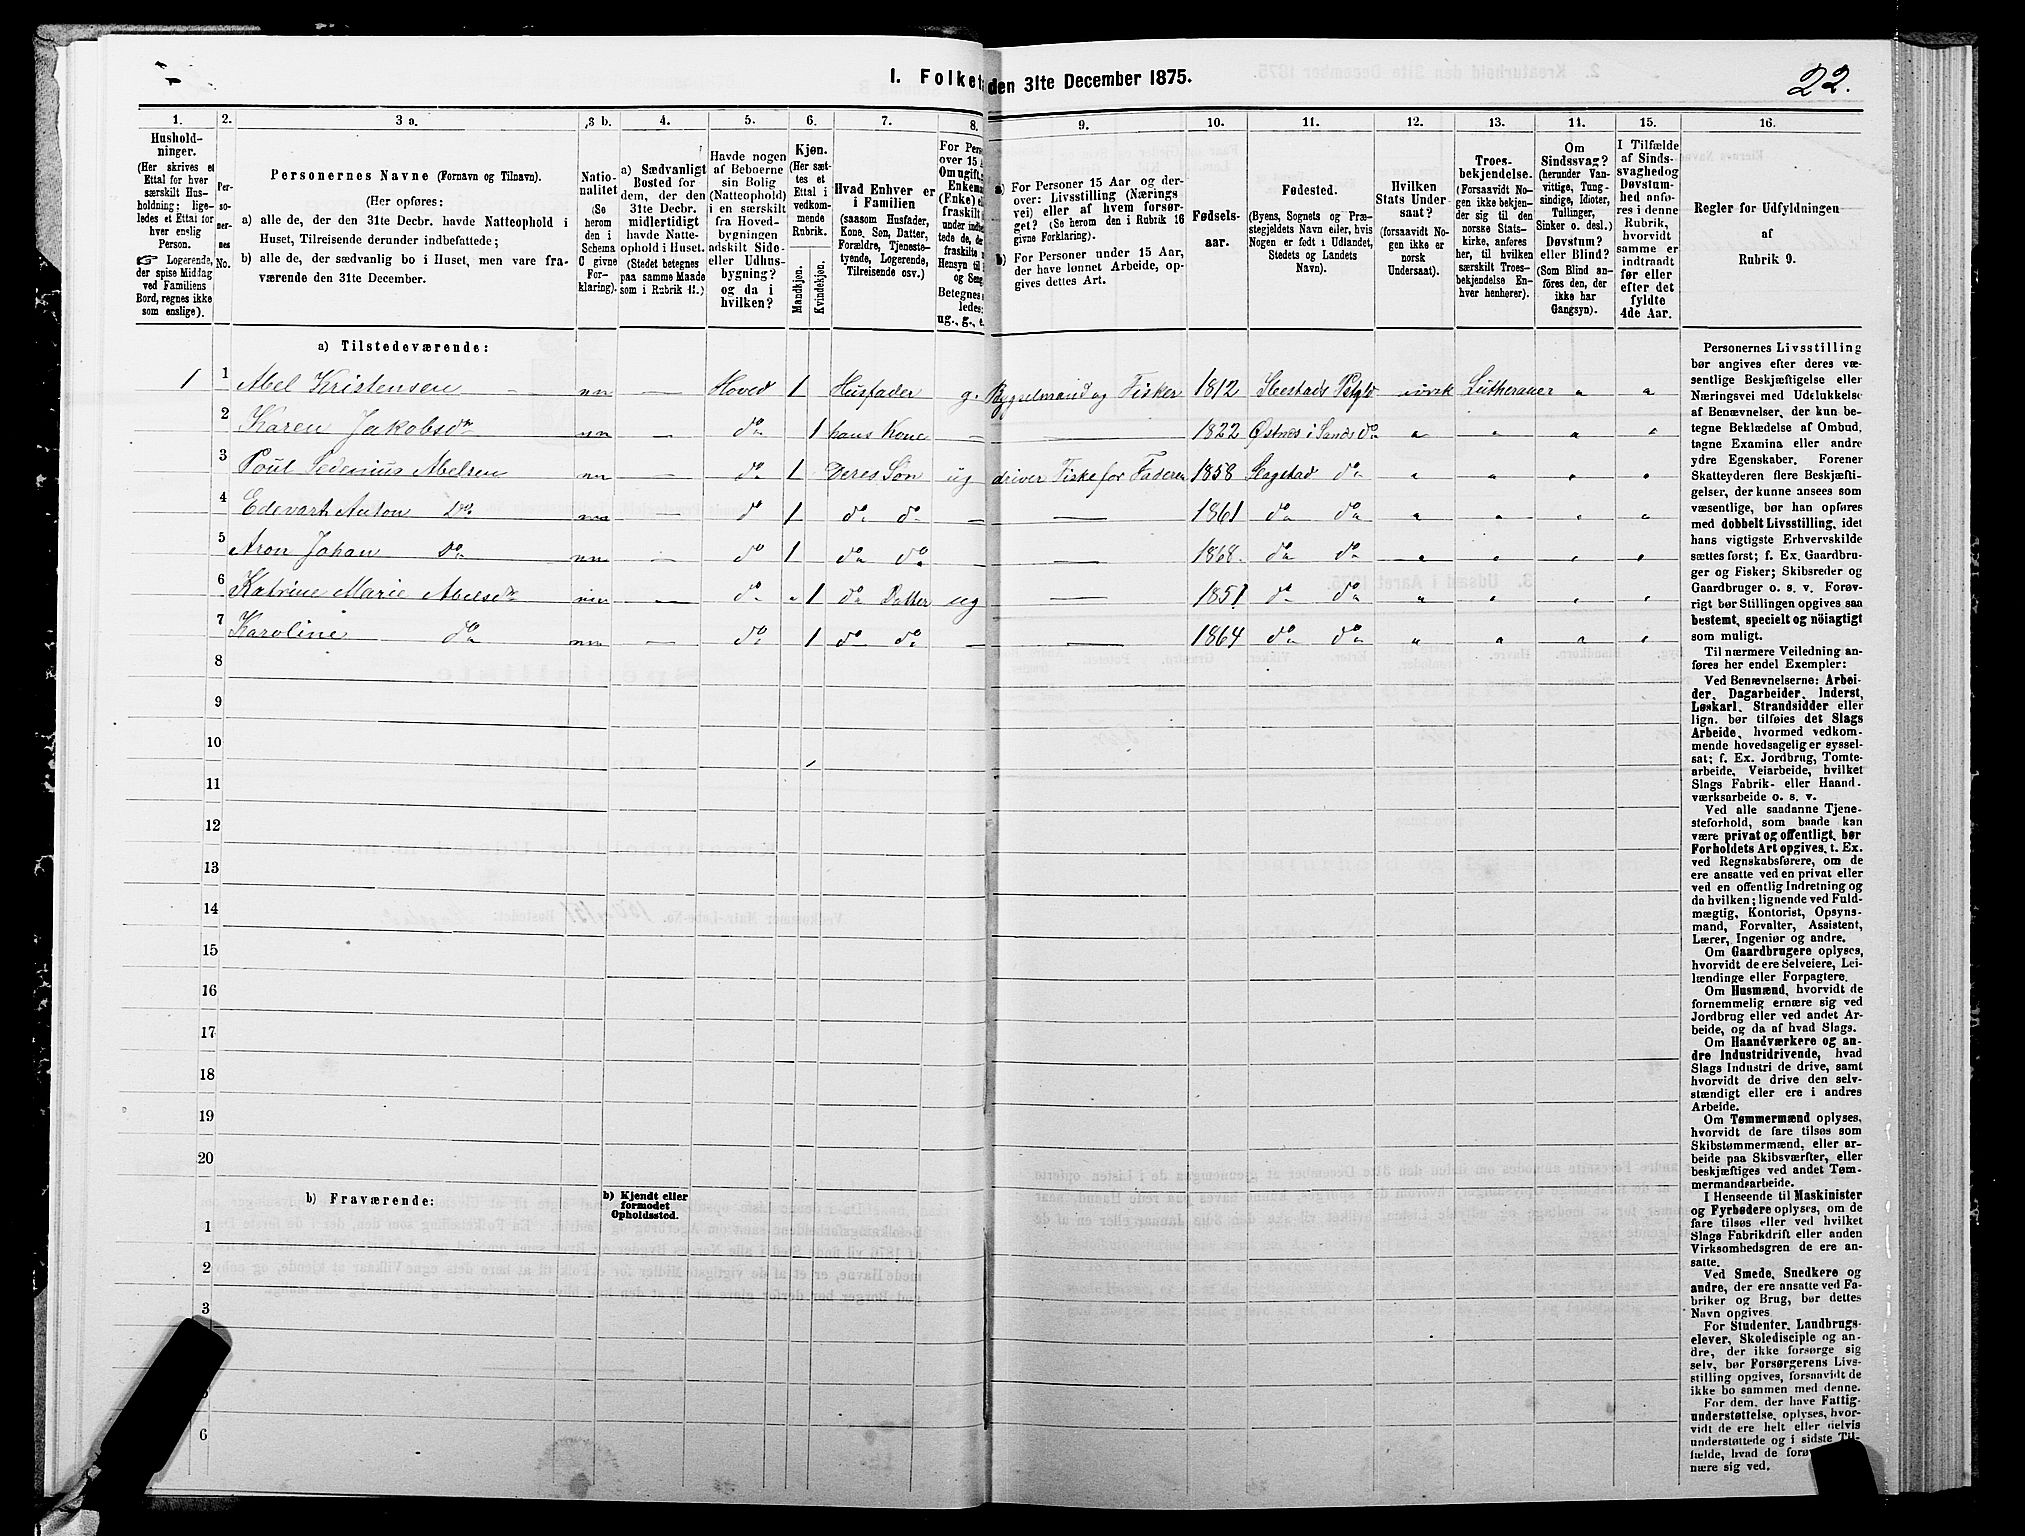 I. Folketæ den 31te December 1875.
22.
1. 2. 3 a. 3 b. 4. 5. 6. 7. 8. 9. 10. 11. 12. 13. 14. 15. 16.
Hushold-
ninger.
(Her skrives et
Ettal for hver
særskilt Hus-
holdning; lige-
ledes et Ettal for
hver enslig
Person.
☞ Logerende,
der spise Middag
ved Familiens
Bord, regnes ikke
som enslige).
Per-
so-
ner-
nes
No.
Personernes Navne (Fornavn og Tilnavn).
(Her opføres:
a) alle de, der den 31te Decbr. havde Natteophold i
Huset, Tilreisende derunder indbefattede;
b) alle de, der sædvanlig bo i Huset, men vare fra-
værende den 31te December.
Natio-
nalitet
(Se
herom
den i
Schema
C givne
For-
klaring).
a) Sædvanligt
Bosted for
dem, der den
31te Decbr.
midlertidigt
havde Natte-
ophold i Huset.
(Stedet betegnes
paa samme Maade
som i Rubrik 11.)
Havde nogen
af Beboerne
sin Bolig
(Natteophold)
i en særskilt
fra Hoved-
bygningen
adskilt Side-
eller Udhus-
bygning?
og da i
hvilken?
Kjøn.
(Her sæt-
tes et
Ettal i
vedkom-
mende
Rubrik.
Mandkjøn.
Kvindekjøn.
Hvad Enhver er
i Familien
(saasom Husfader,
Kone, Søn, Datter,
Forældre, Tjeneste-
tyende, Logerende,
Tilreisende osv.)
For Pers
over 15 A
Om ugift,
Enkema
(Enke) e
fraskilt
under indbe
tede de, der
fraskilte
Hensyn til
og Seng
Betegnes
ledes:
ug., g., e.
a) For Personer 15 Aar og der-
over: Livsstilling (Nærings
vei) eller af hvem forsør-
get (Se herom den i Rubrik 16
givne Forklaring).
b) For Personer under 15 Aar,
der have lønnet Arbeide, op-
gives dettes Art.
Fødsels-
aar.
Fødested.
(Byens, Sognets og Præ-
stegjeldets Navn eller, hvis
Nogen er født i Udlandet,
Stedets og Landets
Navn).
Hvilken
Stats Under-
saat?
(forsaavidt No-
gen ikke er
norsk
Undersaat).
Troes-
bekjendelse.
(Forsaavidt No-
gen ikke bekjen-
der sig til den
norske Stats-
kirke, anføres
her, til hvilken
særskilt Troes-
bekjendelse En-
hver henhører).
Om
Sindssvag?
(herunder Van-
vittige, Tung-
sindige, Idioter,
Tullinger,
Sinker o. desl.)
Døvstum?
eller Blind?
(Som Blind an-
føres den, der
ikke har
Gangsyn).
I Tilfælde
af Sinds-
svaghed og
Døvstum-
hed anfø-
res i denne
Rubrik,
hvorvidt
samme er
indtraadt
før eller
efter det
fyldte
4de Aar.
Regler for Udfyldningen
af
Rubrik 9.
a) Tilstedeværende:
1 1 Abel Kristensen nn — Hoved 1 Husfader g. og Fisker 1812 norsk Lutheraner " "
2 Karen Jakobsdr nn — do 1 hans Kone — — 1822 Østnes i Sands do " " " "
3 Poul Sedenius Abelsen nn — do 1 Deres Søn ug driver Fiske for Faderen 1858 Slagstad do " " " "
4 Edevart Anton Do nn — do 1 do do — — 1861 do do " " " "
5 Aron Johan Do nn — do 1 do do — 1868 do do " " " "
6 Katrine Marie Abelsdr nn — do " 1 do Datter ug — 1851 do do " " " "
7 Karoline do nn — do 1 do do — — 1864 do do " " " "
8
9
10
11
12
13
14
15
16
17
18
19
20
b) Fraværende:
b) Kjendt eller
formodet
Opholdssted.
1
2
3
6
Personernes Livsstilling
bør angives efter deres væ-
sentlige Beskjæftigelse eller
Næringsvei med Udelukkelse
af Benævnelser, der kun be-
tegne Beklædelse af Ombud,
tagne Examina eller andre
ydre Egenskaber. Forener
Skatteyderen flere Beskjæfti-
gelser, der kunne ansees som
væsentlige, bør han opføres
med dobbelt Livsstilling, idet
hans vigtigste Erhvervskilde
sættes først; f. Ex. Gaardbru-
ger og Fisker; Skibsreder og
Gaardbruger o. s. v. Forøv-
rigt bør Stillingen opgives saa
bestemt, specielt og nöiagtigt
som muligt.
Til nærmere Veiledning an-
føres her endel Exempler:
Ved Benævnelserne: Arbei-
der, Dagarbeider, Inderst,
Løskarl, Strandsidder eller
lign. bør tilføies det Slags
Arbeide, hvormed vedkom-
mende hovedsagelig er syssel-
sat; f. Ex. Jordbrug, Tomte-
arbeide, Veiarbeide, hvilket
Slags Fabrik- eller Haand-
værksarbeide o. s. v.
Ved alle saadanne Tjene-
steforhold, som baade kan
være privat og offentligt, bør
Forholdets Art opgives, t. Ex.
ved Regnskabsførere, om de
ere ansatte ved en privat eller
ved en offentlig Indretning og
da hvilken; lignende ved Fuld-
mægtig, Kontorist, Opsyns-
mand, Forvalter, Assistent,
Lærer, Ingeniør og andre.
Om Gaardbrugere oplyses,
hvorvidt de ere Selveiere, Lei-
lændinge eller Forpagtere.
Om Husmænd, hvorvidt de
fornemmelig ernære sig ved
Jordbrug eller ved andet Ar-
beide, og da af hvad Slags.
Om Haandværkere og an-
dre Industridrivende, hvad
Slags Industri de drive, samt
hvorvidt de drive den selv-
stændigt eller ere i andres
Arbeide.
Om Tømmermænd oplyses,
hvorvidt de fare tilsøs som
Skibstømmermænd, eller ar-
beide paa Skibsværfter, eller
beskjæftiges ved andet Tøm-
mermandsarbeide.
I Henseende til Maskinister
og Fyrbødere oplyses, om de
fare tilsøs eller ved hvilket
Slags Fabrikdrift eller anden
Virksomhedsgren de ere an-
satte.
Ved Smede, Snedkere og
andre, der ere ansatte ved Fa-
briker og Brug, bør dettes
Navn opgives
For Studenter, Landbrugs-
elever, Skoledisciple og an-
dre, der ikke forsørge sig
selv, bør Forsørgerens Livs-
stilling opgives, forsaavidt de
ikke bo sammen med denne.
For dem, der have Fattig-
understøttelse, oplyses, hvor-
vidt de ere helt eller delvis
understøttede og i sidste Til-
fælde, hvad de forø
nære sig ved.